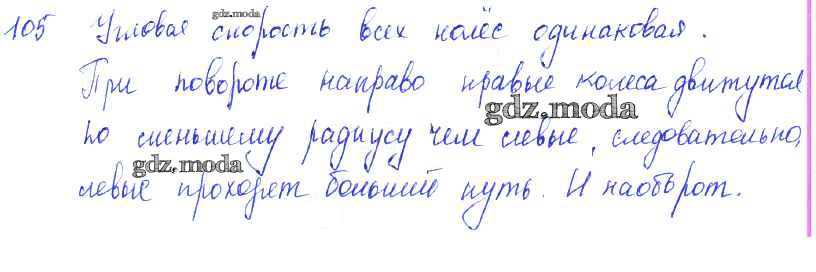 gdz.moda
105 Угловая скорость всех колёс одинаковая.
При повороте направо правые колеса движутся
gdz.moda
по меньшему радиусу чем левые, следовательно,
gdz.moda
левые проходят больший путь. И наоборот.